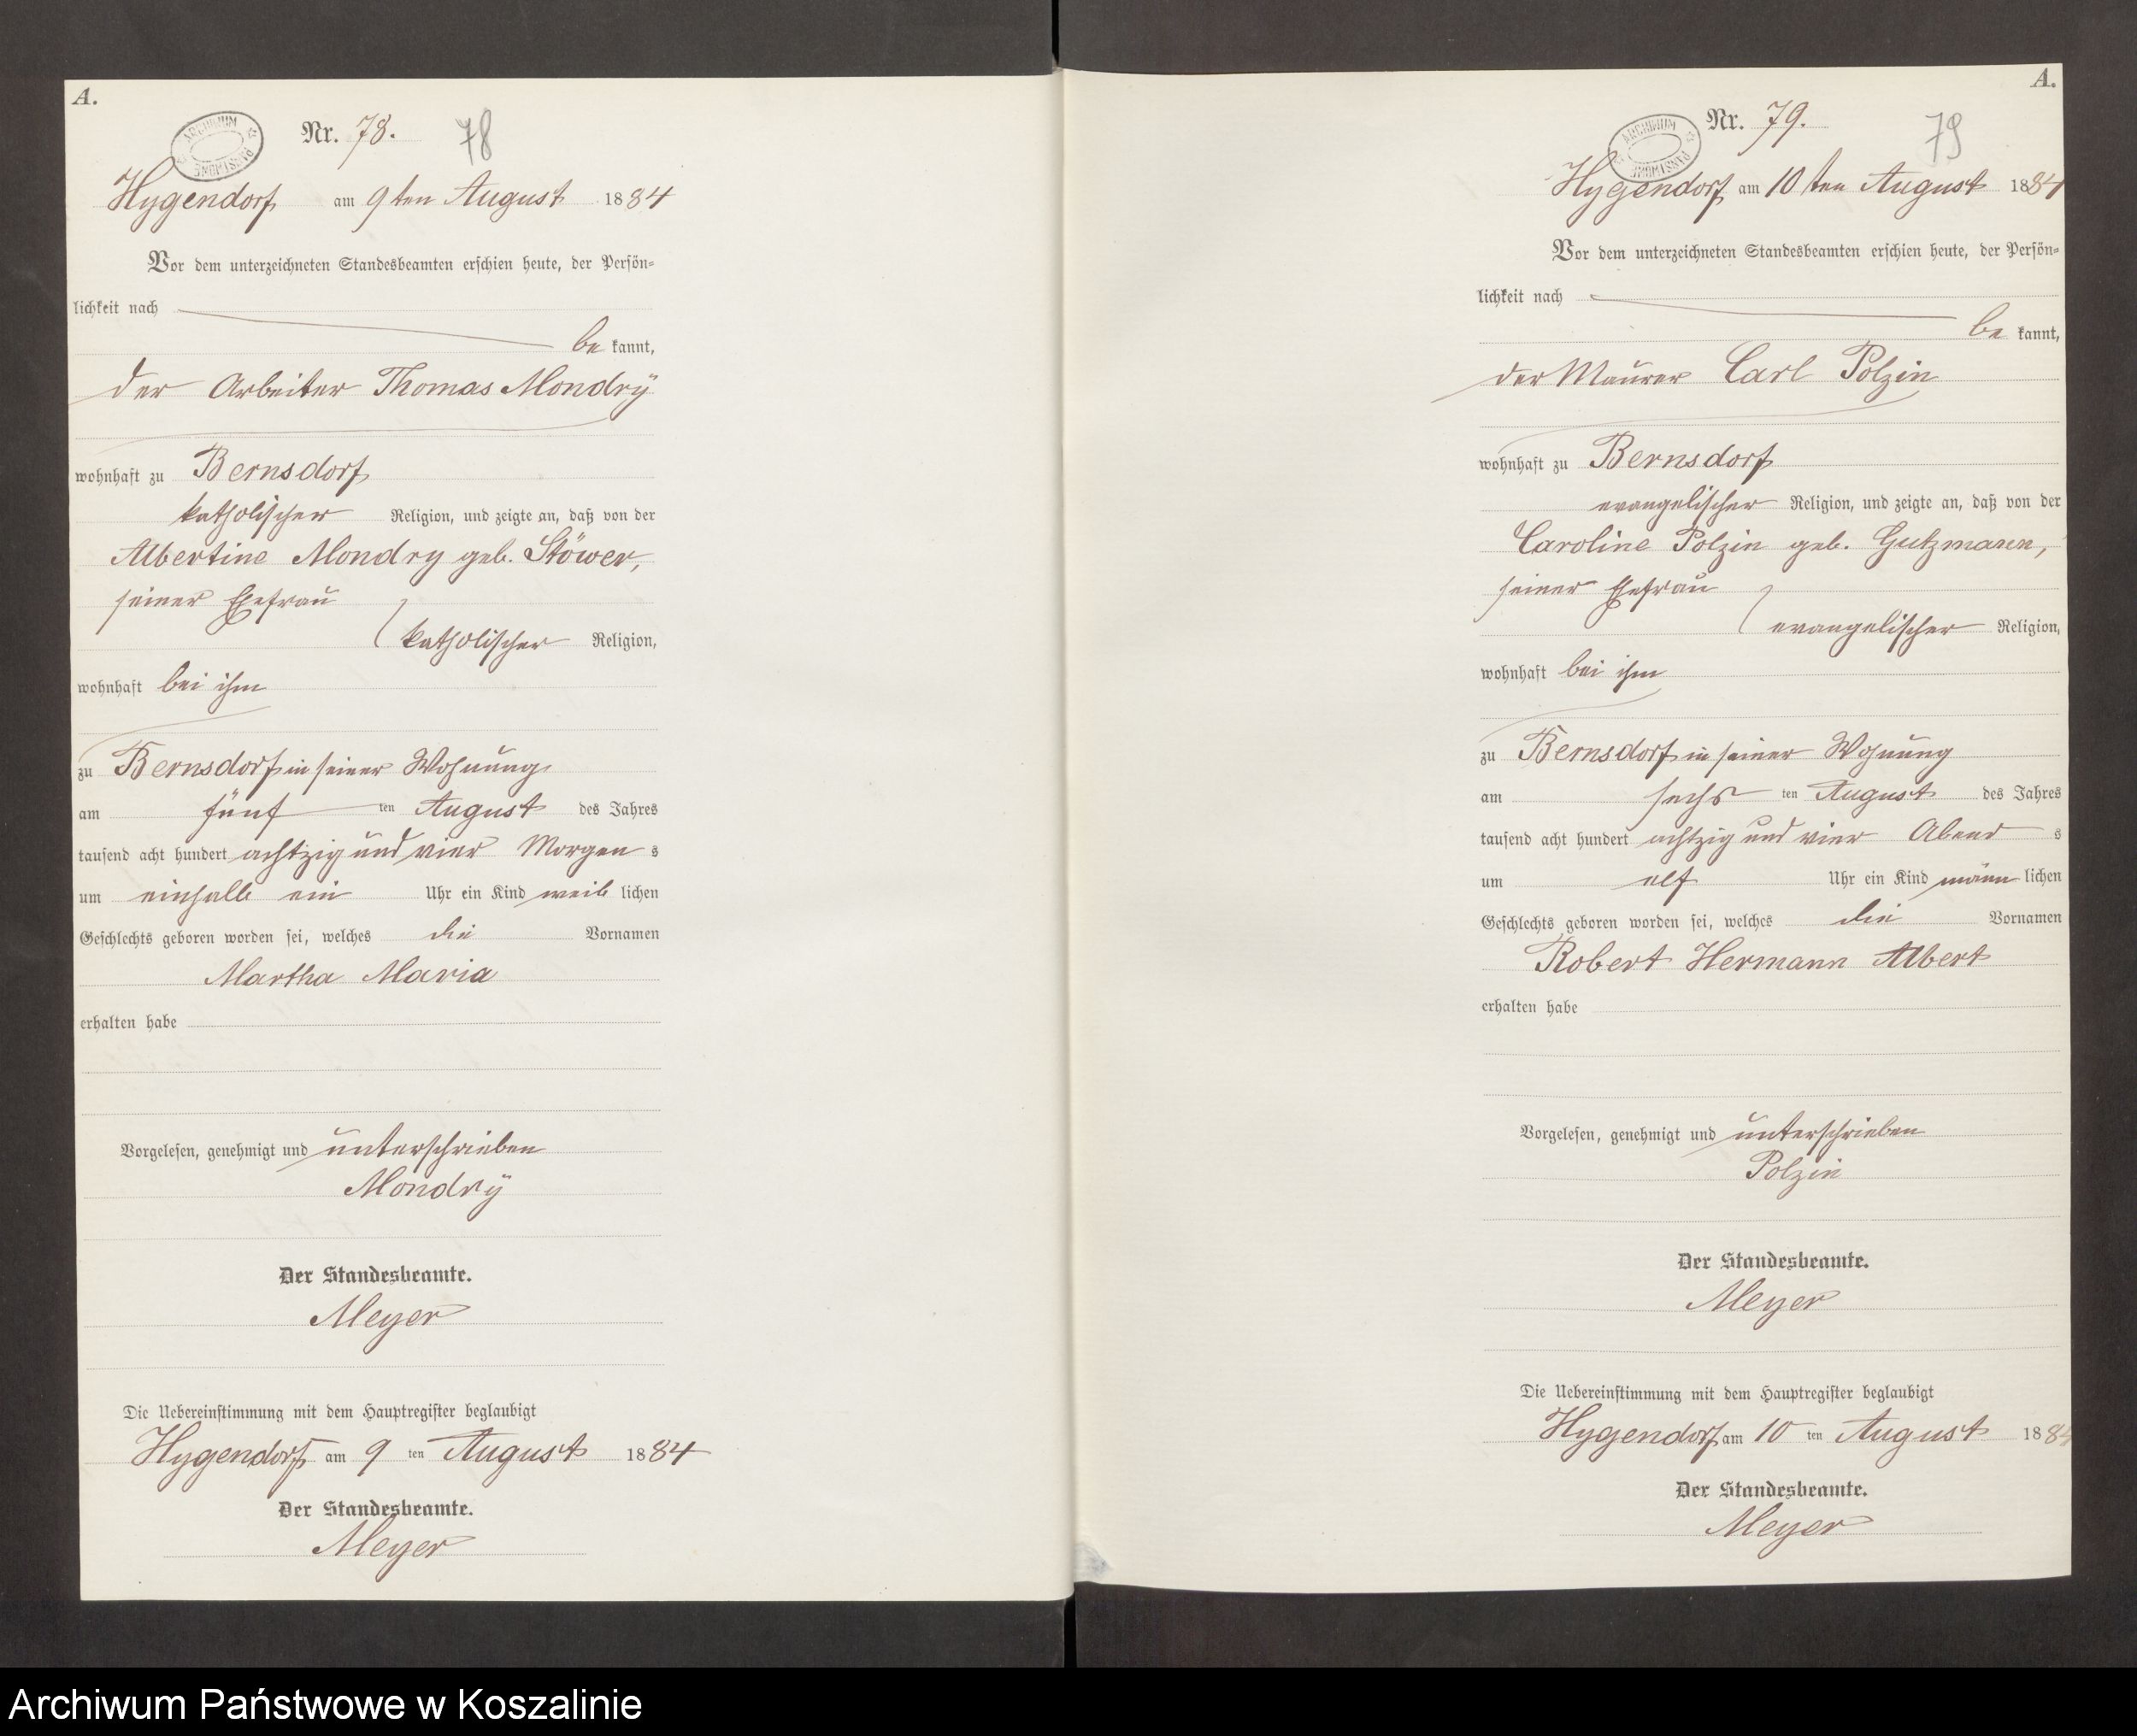 A.
ARCHIWUM PAŃSTWOWE
Nr. 78.
78
Hygendorf am 9ten August 1884
Vor dem unterzeichneten Standesbeamten erschien heute, der Persön-
lichkeit nach
be kannt,
der Arbeiter Thomas Mondry
wohnhaft zu Bernsdorf
katholischer Religion, und zeigte an, daß von der
Albertine Mondry geb. Stöwer,
seiner Ehefrau
katholischer Religion,
wohnhaft bei ihm
zu Bernsdorf in seiner Wohnung
am fünf ten August des Jahres
tausend acht hundert achtzig und vier Morgen s
um einhalb ein Uhr ein Kind weib lichen
Geschlechts geboren worden sei, welches die Vornamen
Martha Maria
erhalten habe
Vorgelesen, genehmigt und unterschrieben
Mondry
Der Standesbeamte.
Meyer
Die Uebereinstimmung mit dem Hauptregister beglaubigt
Hygendorf am 9 ten August 1884
Der Standesbeamte.
Meyer
A.
ARCHIWUM PAŃSTWOWE
Nr. 79.
79
Hygendorf am 10ten August 1884
Vor dem unterzeichneten Standesbeamten erschien heute, der Persön-
lichkeit nach
be kannt,
der Maurer Carl Polzin
wohnhaft zu Bernsdorf
evangelischer Religion, und zeigte an, daß von der
Caroline Polzin geb. Gutzmann,
seiner Ehefrau
evangelischer Religion,
wohnhaft bei ihm
zu Bernsdorf in seiner Wohnung
am sechs ten August des Jahres
tausend acht hundert achtzig und vier Abend s
um elf Uhr ein Kind männ lichen
Geschlechts geboren worden sei, welches die Vornamen
Robert Hermann Albert
erhalten habe
Vorgelesen, genehmigt und unterschrieben
Polzin
Der Standesbeamte.
Meyer
Die Uebereinstimmung mit dem Hauptregister beglaubigt
Hygendorf am 10 ten August 1884
Der Standesbeamte.
Meyer
Archiwum Państwowe w Koszalinie